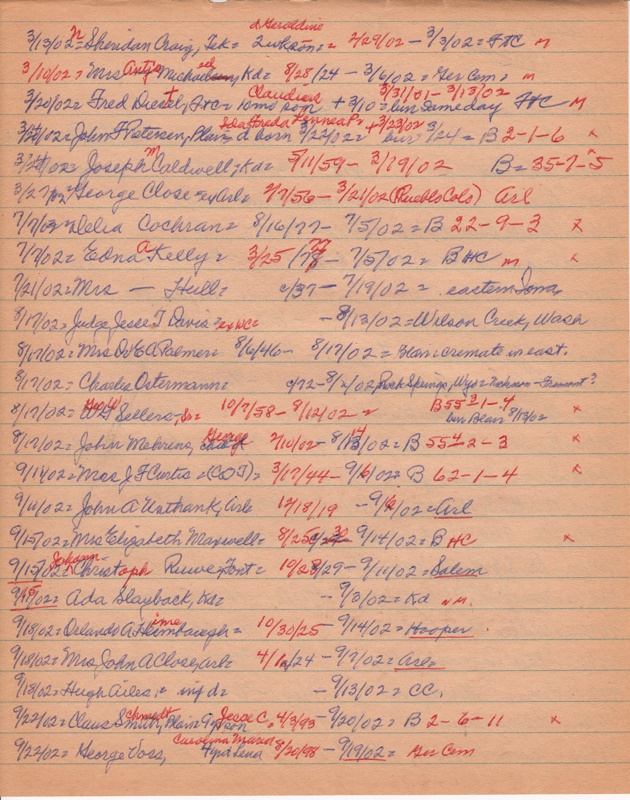 d Geraldine
3/13/02 = Sheridan Craig, Tek = 2/29/02 - 3/3/02 = FTC M
3/10/02 = Mrs Antje Michael sen, Kd = 8/28/24 - 3/6/02 = Ger Cem = M
Claudius 3/31/01 - 3/13/02
3/20/02 = Fred Diesel, = 10mo son + 3/10 = bur same day FTC M
+ 3/23/02
John F Petersen, Blair d born 3/22/02 = bur 3/24 = B 2-1-6 x
Joseph M Caldwell, Kd = 5/11/59 - 3/19/02 B = 35-7-5 x
3/27/02 = George Close = ex Arl = 2/7/56 - 3/21/02 (Pueblo Colo) Arl
7/7/02 = Delia Cochran = 8/16/77 - 7/5/02 = B 22-9-3 x
7/7/02 = Edna A Kelly = 3/25/78 77 - 7/5/02 = B HC M x
7/21/02 = Mrs — Hull = c/37 - 7/19/02 = eastern Iowa
8/17/02 = Judge Jesse T Davis = ex WC = - 8/13/02 = Wilson Creek, Wash
8/17/02 = Mrs Dr E A Palmer = 8/6/46 - 8/17/02 = Blair cremate in east.
8/17/02 = Charles Ostermann = c/72 - 8/ /02 Rock Springs, Wyo = Nickerson - Fremont?
8/17/02 = Geo W Sellers, = 10/7/58 - 8/12/02 = B 55 3 1-4 bur Blair 8/13/02 x
8/17/02 = John Mehrens, George 2/10/02 - 8/13 14/02 = B 55 4 2-3 x
9/11/02 = Mrs J F Curtis = (COJ) = 3/17/44 - 9/6/02 = B 62-1-4 x
9/11/02 = John A Unthank, Arl = 12/18/19 - 9/6/02 = Arl
9/15/02 = Mrs Elizabeth Maxwell = 8/25 30 9/14/02 = B HC x
Johann
9/15/02 = Christoph Ruwe, Font = 10/28/29 - 9/11/02 = Salem
9/18/02 = Ada Slayback, Kd = - 9/3/02 = Kd NM.
9/18/02 = Orlando A Heimbaugh = ime 10/30/25 - 9/14/02 = Hooper.
9/18/02 = Mrs, John A Close, Arl = 4/10/24 - 9/7/02 = Arl =
9/18/02 = Hugh Ailes, = inf d = - 9/13/02 = CC.
9/22/02 = Claus Smith, chmidt Blair 1 yr son Jesse C, 4/3/93 - 9/20/02 = B 2-6-11 x
9/22/02 = George Voss, Carolina Maria 8/20/98 - 9/19/02 = Ger Cem